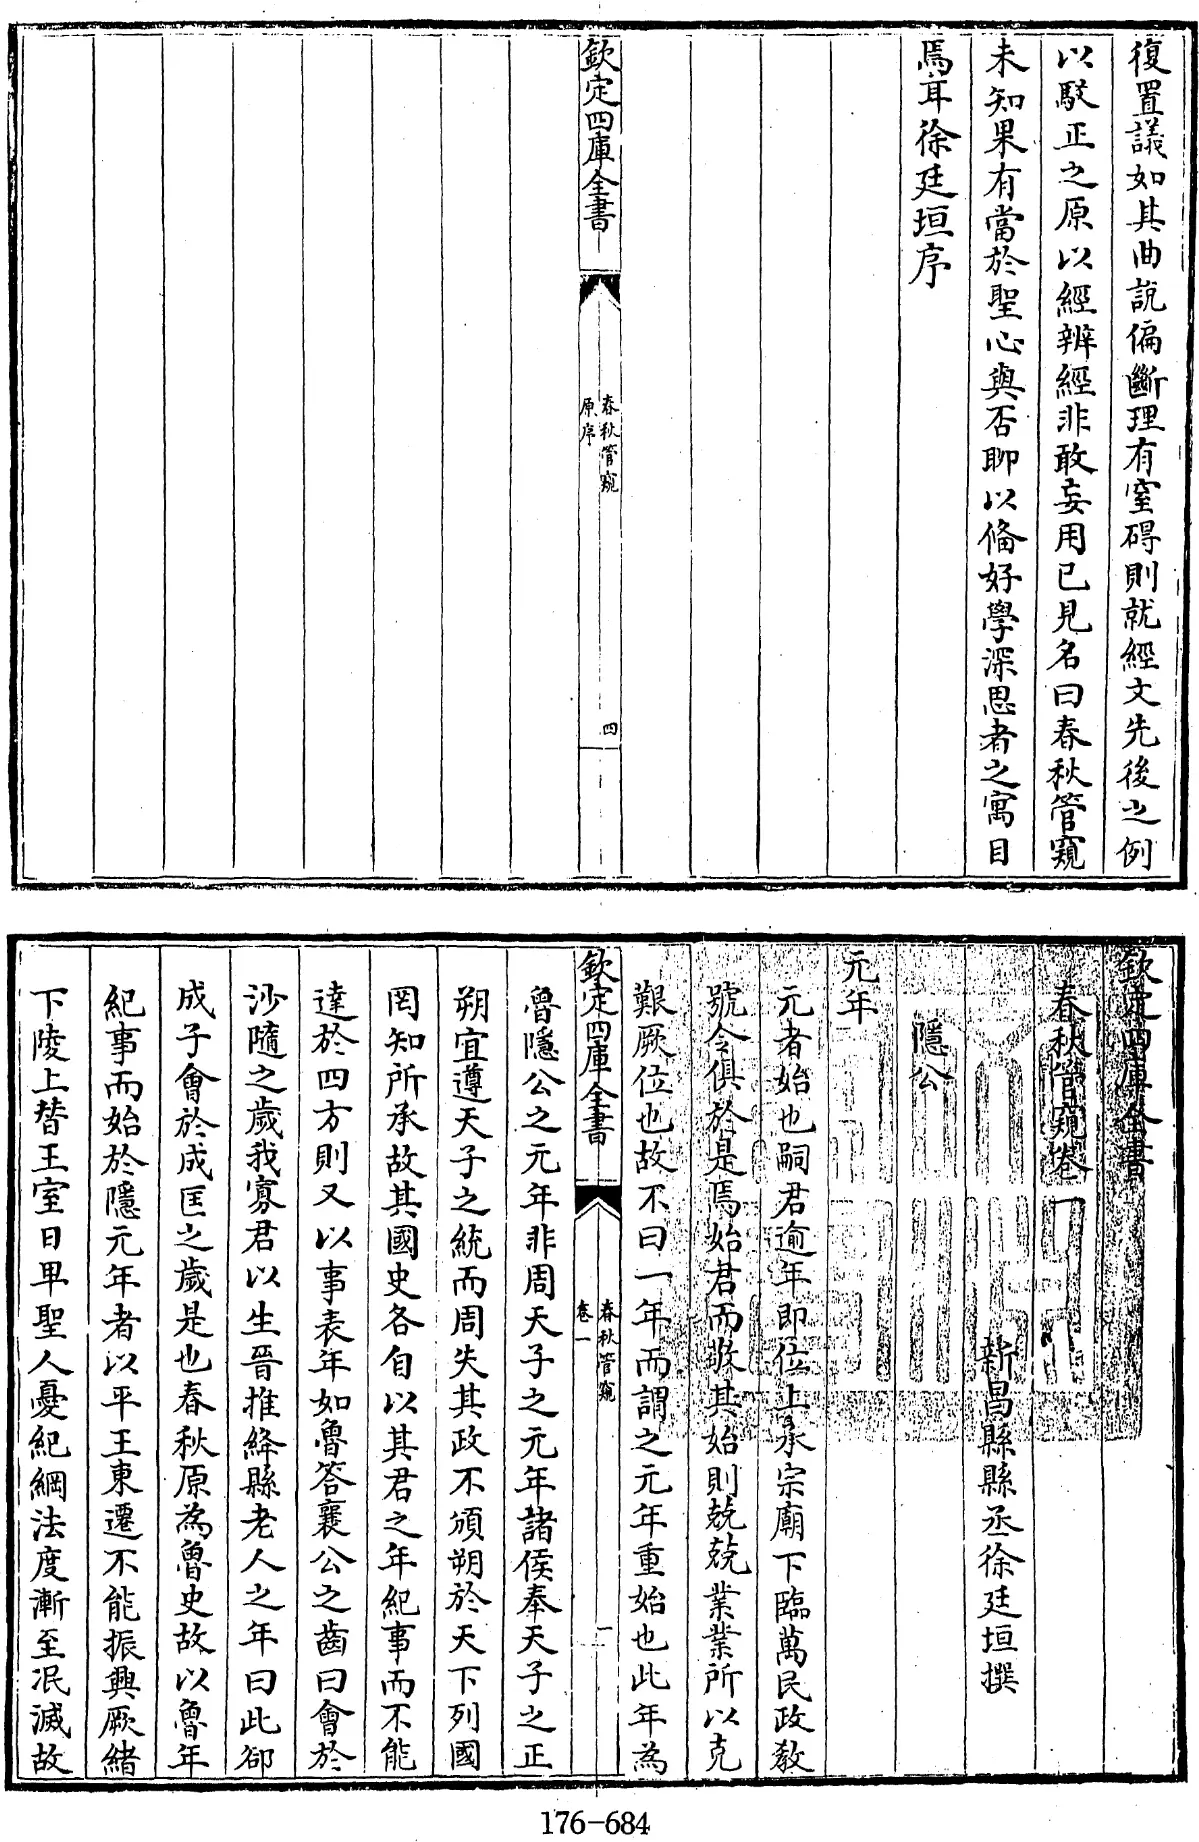 復置議如其曲說偏斷理有窒碍則就經文先後之例
以駮正之原以經辨經非敢妄用己見名曰春秋管窺
未知果有當於聖心與否聊以備好學深思者之寓目
焉耳徐廷垣序
欽定四庫全書
春秋管窺
原序
四
欽定四庫全書
春秋管窺卷一
新昌縣縣丞徐廷垣撰
隱公
元年
元者始也嗣君逾年即位上承宗廟下臨萬民政敎
號令俱於是焉始君而敬其始則兢兢業業所以克
艱厥位也故不曰一年而謂之元年重始也此年為
欽定四庫全書
春秋管窺
卷一
一
魯隱公之元年非周天子之元年諸侯奉天子之正
朔宜遵天子之統而周失其政不頒朔於天下列國
罔知所承故其國史各自以其君之年紀事而不能
達於四方則又以事表年如魯答襄公之齒曰會於
沙隨之歲我寡君以生晉推絳縣老人之年曰此郤
成子會於成匡之歲是也春秋原為魯史故以魯年
紀事而始於隱元年者以平王東遷不能振興厥緒
下陵上替王室日卑聖人憂紀綱法度漸至泯滅故
176-684